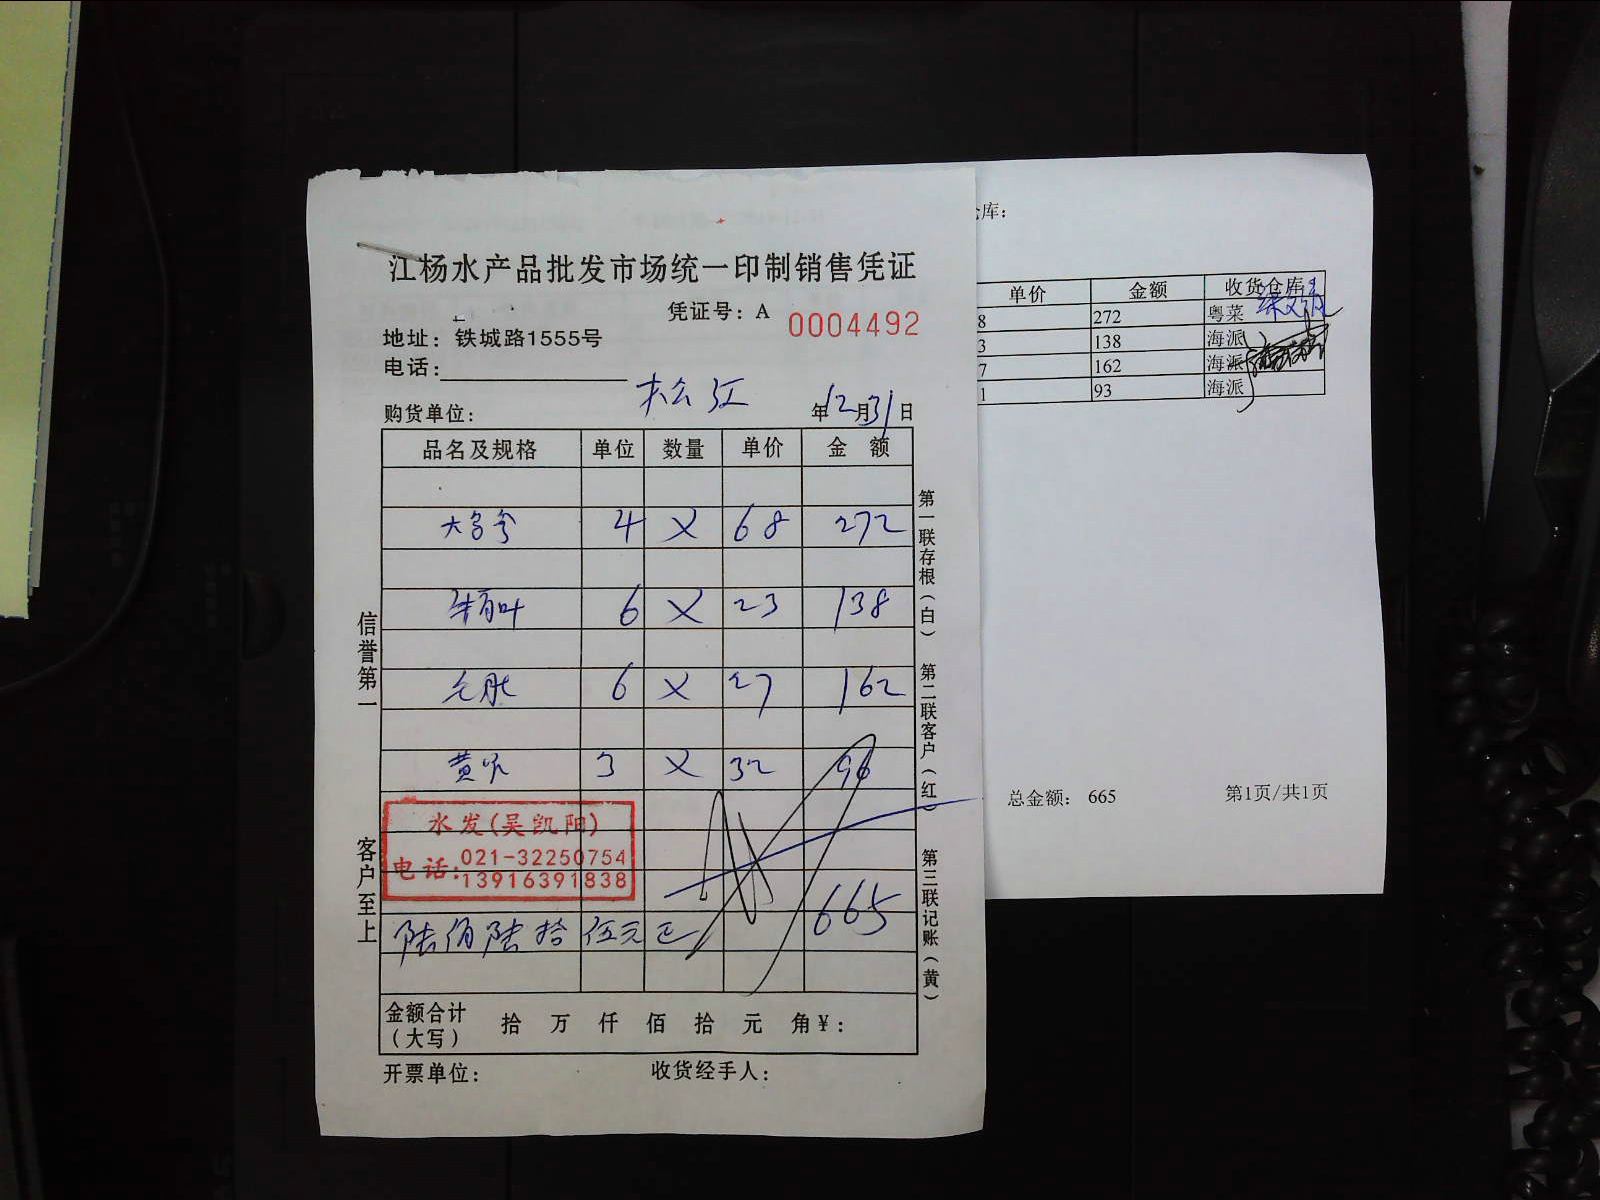 江杨水产品批发市场统一印制销售凭证
凭证号：A 0004492
地址：铁城路1555号
电话：
松江
购货单位： 年12月31日
品名及规格 单位 数量 单价 金 额
4 × 68 272
牛百叶 6 × 23 138
毛肚 6 × 27 162
黄喉 3 × 32 96
水发(吴凯阳)
电话:021-32250754
13916391838
665
陆佰陆拾伍元正
金额合计（大写） 拾 万 仟 佰 拾 元 角¥：
开票单位： 收货经手人：
信誉第一 客户至上
第一联存根（白） 第二联客户（红） 第三联记账（黄）
库：
单价 金额 收货仓库
8 272 粤菜
3 138 海派
7 162 海派
1 93 海派
总金额： 665 第1页/共1页